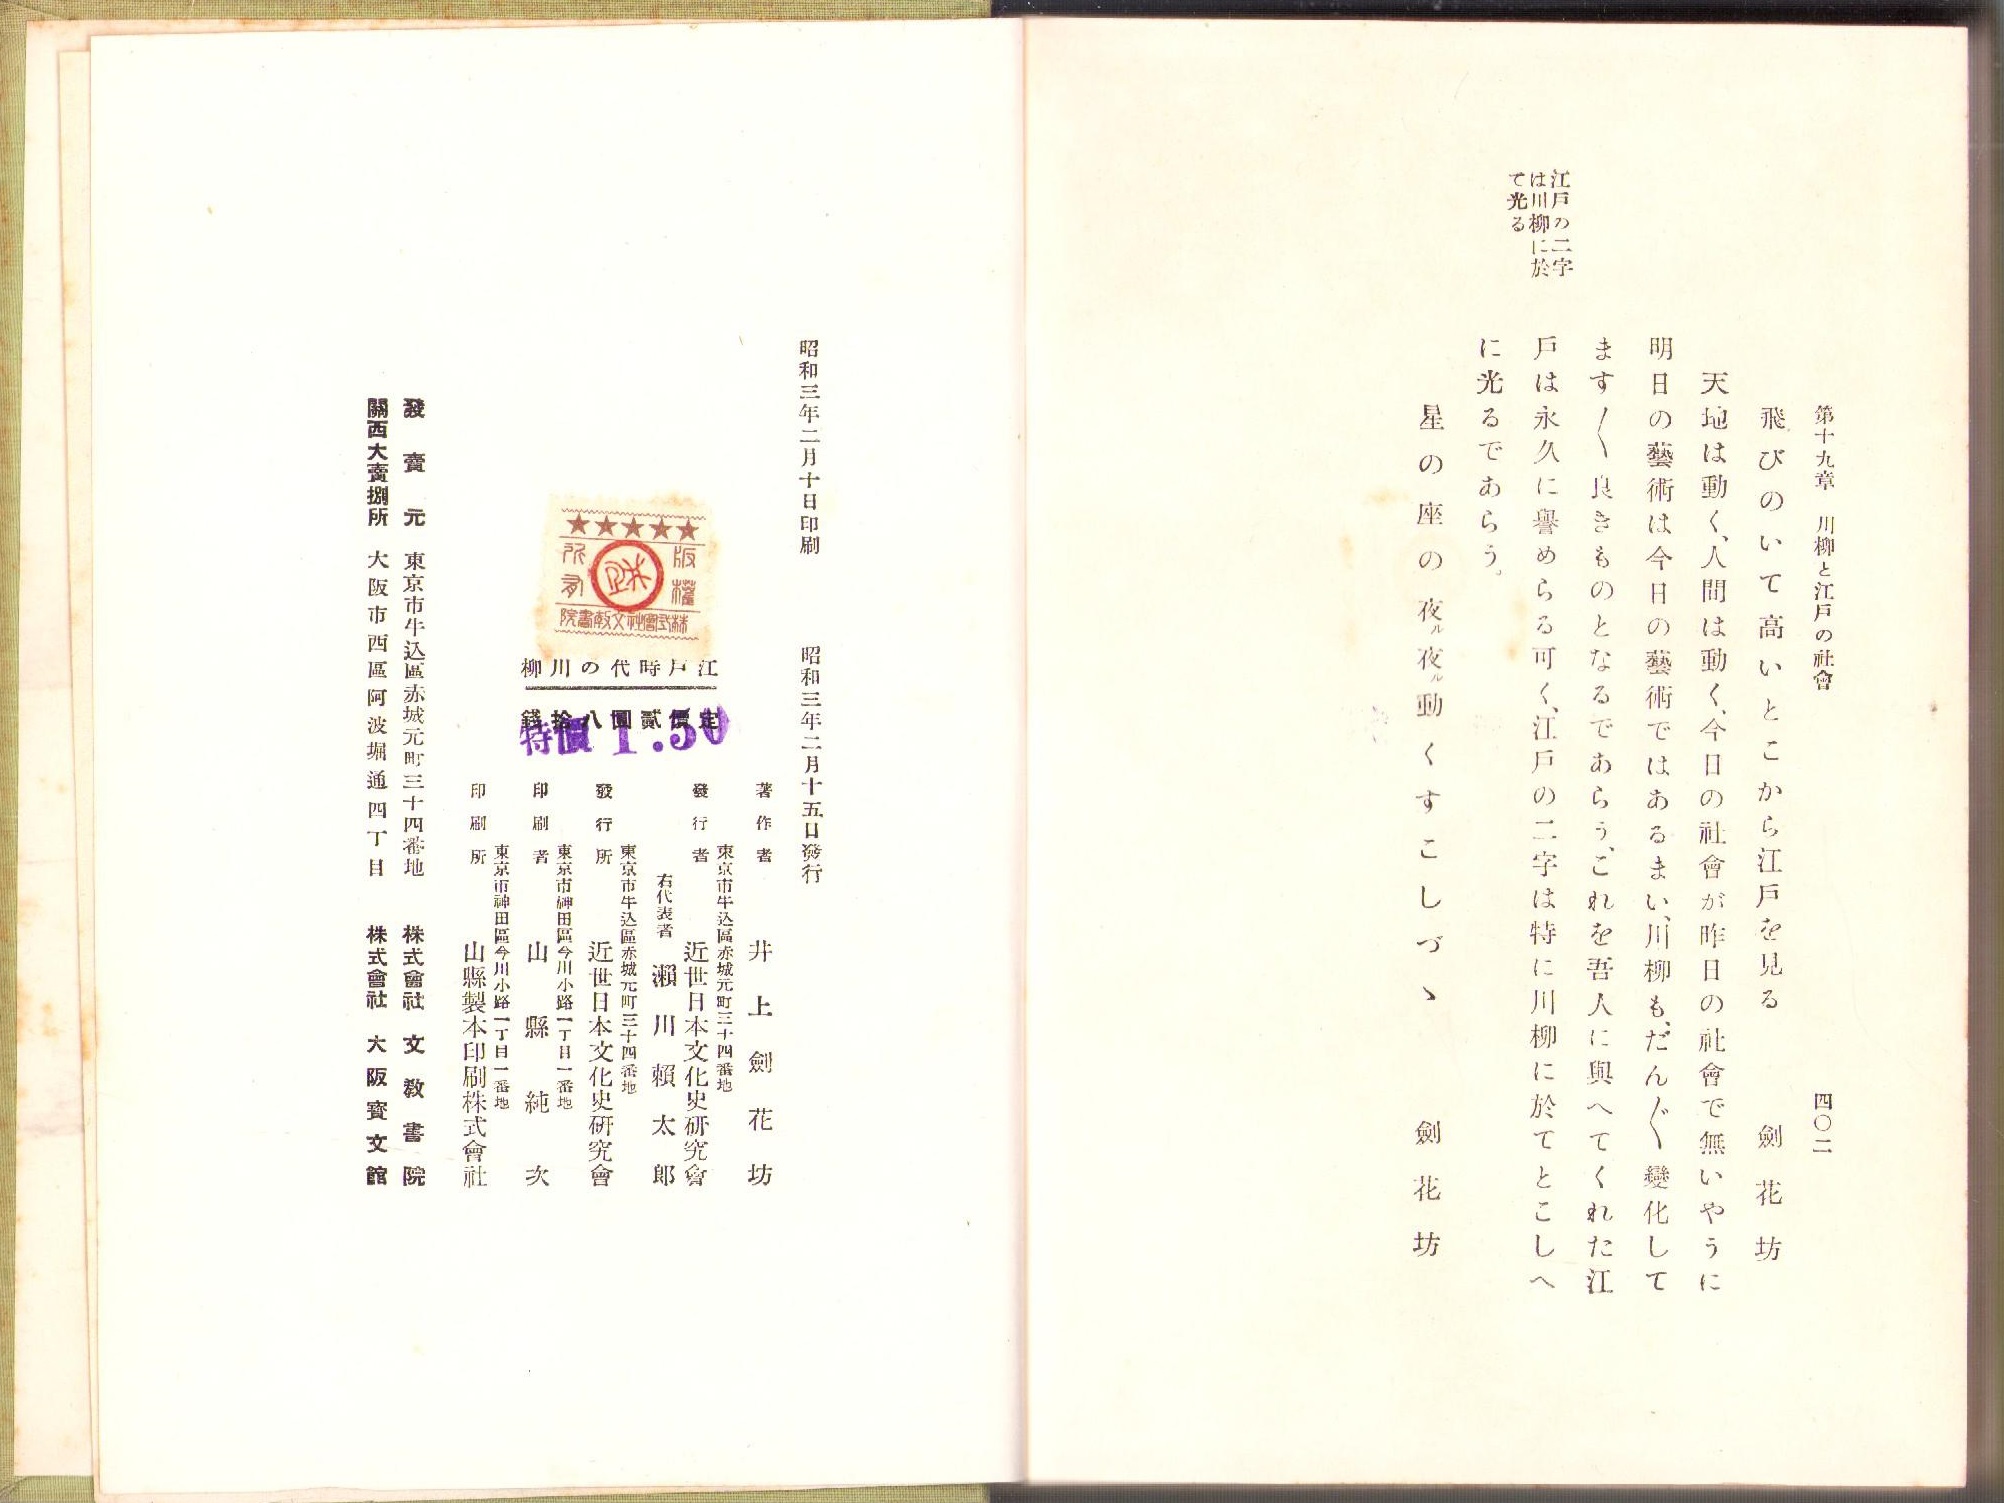 第十九章　川柳と江戸の社會　四〇二
飛びのいて高いとこから江戸を見る　劍花坊
天地は動く、人間は動く、今日の社會が昨日の社會で無いやうに
明日の藝術は今日の藝術ではあるまい、川柳も、だん〴〵變化して
ます〳〵良きものとなるであらう、これを吾人に與へてくれた江
戸は永久に譽めらる可く、江戸の二字は特に川柳に於てとこしへ
に光るであらう。
江戸の二字
は川柳に於
て光る
星の座の夜ル夜ル動くすこしづゝ　劍花坊
昭和三年二月十日印刷
昭和三年二月十五日發行
★★★★★
版權
所有
株式會社文敎書院
江戸時代の川柳
定價貳圓八拾錢
特價 1.50
著作者　井上劍花坊
東京市牛込區赤城元町三十四番地
發行者　近世日本文化史研究會
右代表者　瀨川賴太郎
東京市牛込區赤城元町三十四番地
發行所　近世日本文化史研究會
東京市神田區今川小路一丁目一番地
印刷者　山縣純次
東京市神田區今川小路一丁目一番地
印刷所　山縣製本印刷株式會社
發賣元　東京市牛込區赤城元町三十四番地　株式會社　文敎書院
關西大賣捌所　大阪市西區阿波堀通四丁目　株式會社　大阪寶文館